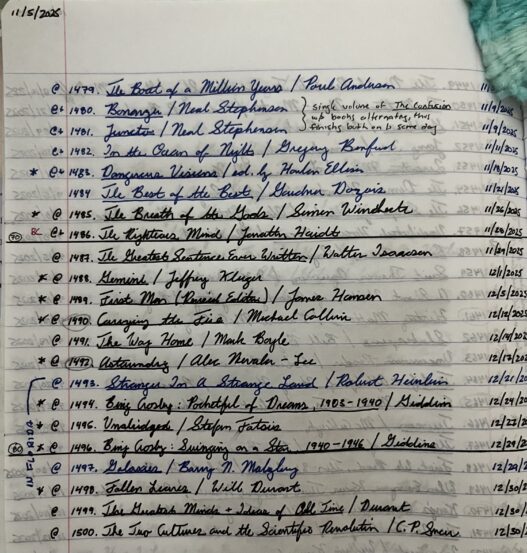 11/5/2025
@ 1479. The Boat of a Million Years / Poul Anderson 11/
@+ 1480. Bonanza / Neal Stephenson } single volume of The Confusion 11/9/2025
w/ books alternating, thus
@+ 1481. Juncto / Neal Stephenson finishing both on same day 11/9/2025
@+ 1482. In the Ocean of Night / Gregory Benford 11/11/2025
* @+ 1483. Dangerous Visions / ed. by Harlan Ellison 11/18/2025
1484 The Best of the Best / Gardner Dozois 11/21/2025
* @ 1485. The Breath of the Gods / Simon Winchester 11/26/2025
(70) BC @+ 1486. The Righteous Mind / Jonathan Haidt 11/28/2025
@ 1487. The Greatest Sentence Ever Written / Walter Isaacson 11/29/2025
* @ 1488. Gemini / Jeffrey Kluger 12/1/2025
* @ 1489. First Man (Revised Edition) / James Hansen 12/5/2025
* @ 1490. Carrying the Fire / Michael Collins 12/2025
@ 1491. The Way Home / Mark Boyle 12/2025
* @ 1492. Astounding / Alec Nevala-Lee 12/2025
@ 1493. Stranger In A Strange Land / Robert Heinlein 12/21/20
* @ 1494. Bing Crosby: Pocketful of Dreams, 1903-1940 / Giddins 12/24/20
* @ 1495. Unabridged / Stefan Fatsis 12/27/20
(80) * @ 1496. Bing Crosby: Swinging on a Star 1940-1946 / Giddins 12/29/20
@ 1497. Galaxies / Barry N. Malzberg 12/29/2
* @ 1498. Fallen Leaves / Will Durant 12/30/2
@ 1499. The Greatest Minds + Ideas of All Time / Durant 12/30/
@ 1500. The Two Cultures and the Scientific Revolution / C.P. Snow 12/30/
IN FLORIDA